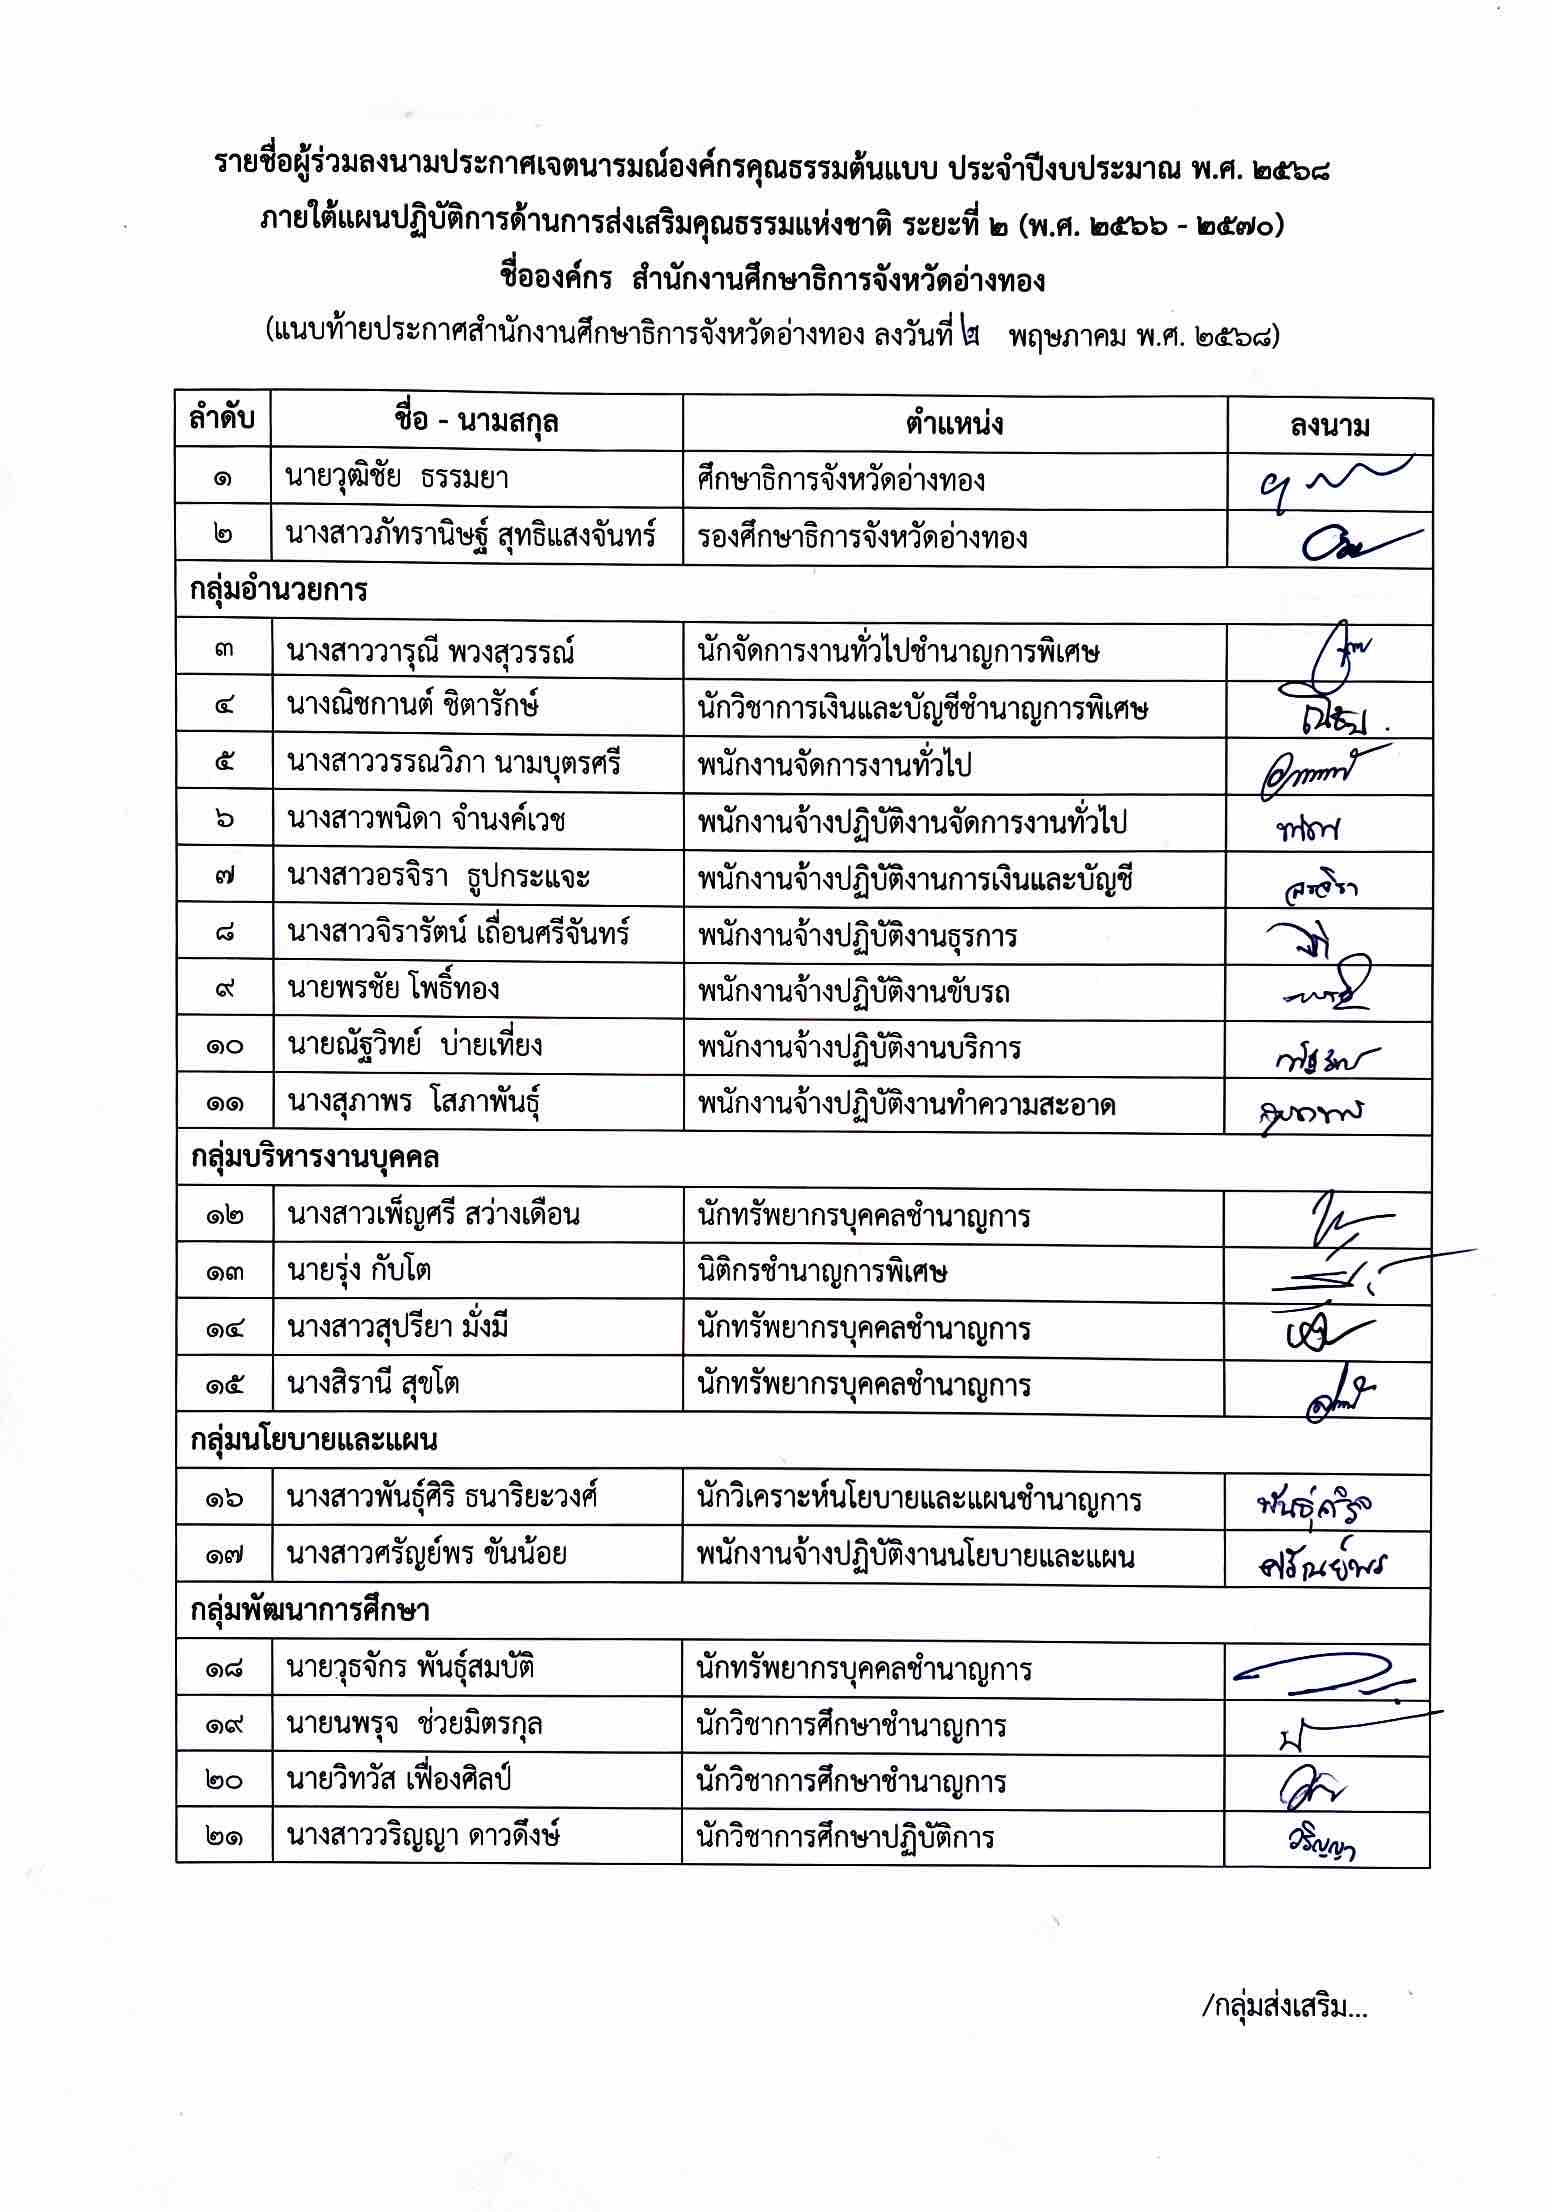 รายชื่อผู้ร่วมลงนามประกาศเจตนารมณ์องค์กรคุณธรรมต้นแบบ ประจำปีงบประมาณ พ.ศ. ๒๕๖๘
ภายใต้แผนปฏิบัติการด้านการส่งเสริมคุณธรรมแห่งชาติ ระยะที่ ๒ (พ.ศ. ๒๕๖๖ - ๒๕๗๐)
ชื่อองค์กร สำนักงานศึกษาธิการจังหวัดอ่างทอง
(แนบท้ายประกาศสำนักงานศึกษาธิการจังหวัดอ่างทอง ลงวันที่ พฤษภาคม พ.ศ. ๒๕๖๘)
ลำดับ ชื่อ - นามสกุล ตำแหน่ง ลงนาม
๑ นายวุฒิชัย ธรรมยา ศึกษาธิการจังหวัดอ่างทอง
๒ นางสาวภัทรานิษฐ์ สุทธิแสงจันทร์ รองศึกษาธิการจังหวัดอ่างทอง
กลุ่มอำนวยการ
๓ นางสาววารุณี พวงสุวรรณ์ นักจัดการงานทั่วไปชำนาญการพิเศษ
๔ นางณิชกานต์ ชิตารักษ์ นักวิชาการเงินและบัญชีชำนาญการพิเศษ
๕ นางสาววรรณวิภา นามบุตรศรี พนักงานจัดการงานทั่วไป
๖ นางสาวพนิดา จำนงค์เวช พนักงานจ้างปฏิบัติงานจัดการงานทั่วไป
๗ นางสาวอรจิรา ธูปกระแจะ พนักงานจ้างปฏิบัติงานการเงินและบัญชี อรจิรา
๘ นางสาวจิรารัตน์ เถื่อนศรีจันทร์ พนักงานจ้างปฏิบัติงานธุรการ
๙ นายพรชัย โพธิ์ทอง พนักงานจ้างปฏิบัติงานขับรถ
๑๐ นายณัฐวิทย์ บ่ายเที่ยง พนักงานจ้างปฏิบัติงานบริการ
๑๑ นางสุภาพร โสภาพันธุ์ พนักงานจ้างปฏิบัติงานทำความสะอาด สุภาพร
กลุ่มบริหารงานบุคคล
๑๒ นางสาวเพ็ญศรี สว่างเดือน นักทรัพยากรบุคคลชำนาญการ
๑๓ นายรุ่ง กับโต นิติกรชำนาญการพิเศษ
๑๔ นางสาวสุปรียา มั่งมี นักทรัพยากรบุคคลชำนาญการ
๑๕ นางสิรานี สุขโต นักทรัพยากรบุคคลชำนาญการ
กลุ่มนโยบายและแผน
๑๖ นางสาวพันธุ์ศิริ ธนาริยะวงศ์ นักวิเคราะห์นโยบายและแผนชำนาญการ พันธุ์ศิริ
๑๗ นางสาวศรัญย์พร ขันน้อย พนักงานจ้างปฏิบัติงานนโยบายและแผน ศรัณย์พร
กลุ่มพัฒนาการศึกษา
๑๘ นายวุธจักร พันธุ์สมบัติ นักทรัพยากรบุคคลชำนาญการ
๑๙ นายนพรุจ ช่วยมิตรกุล นักวิชาการศึกษาชำนาญการ
๒๐ นายวิทวัส เฟื่องศิลป์ นักวิชาการศึกษาชำนาญการ
๒๑ นางสาววริญญา ดาวดึงษ์ นักวิชาการศึกษาปฏิบัติการ วริญญา
/กลุ่มส่งเสริม...